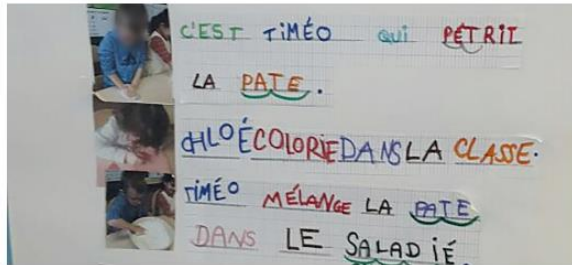 C'EST TiMÉO QUi PÉTRIT
LA PATE.
CHLOÉ COLORiE DANS LA CLASSE.
TiMÉO MÉLANGE LA PATE
DANS LE SALADiÉ.